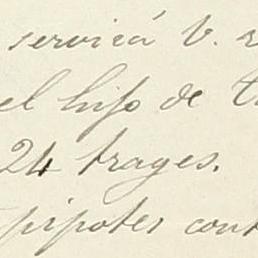 servirá V. 
el hijo de
24 trages.
pipotes cont